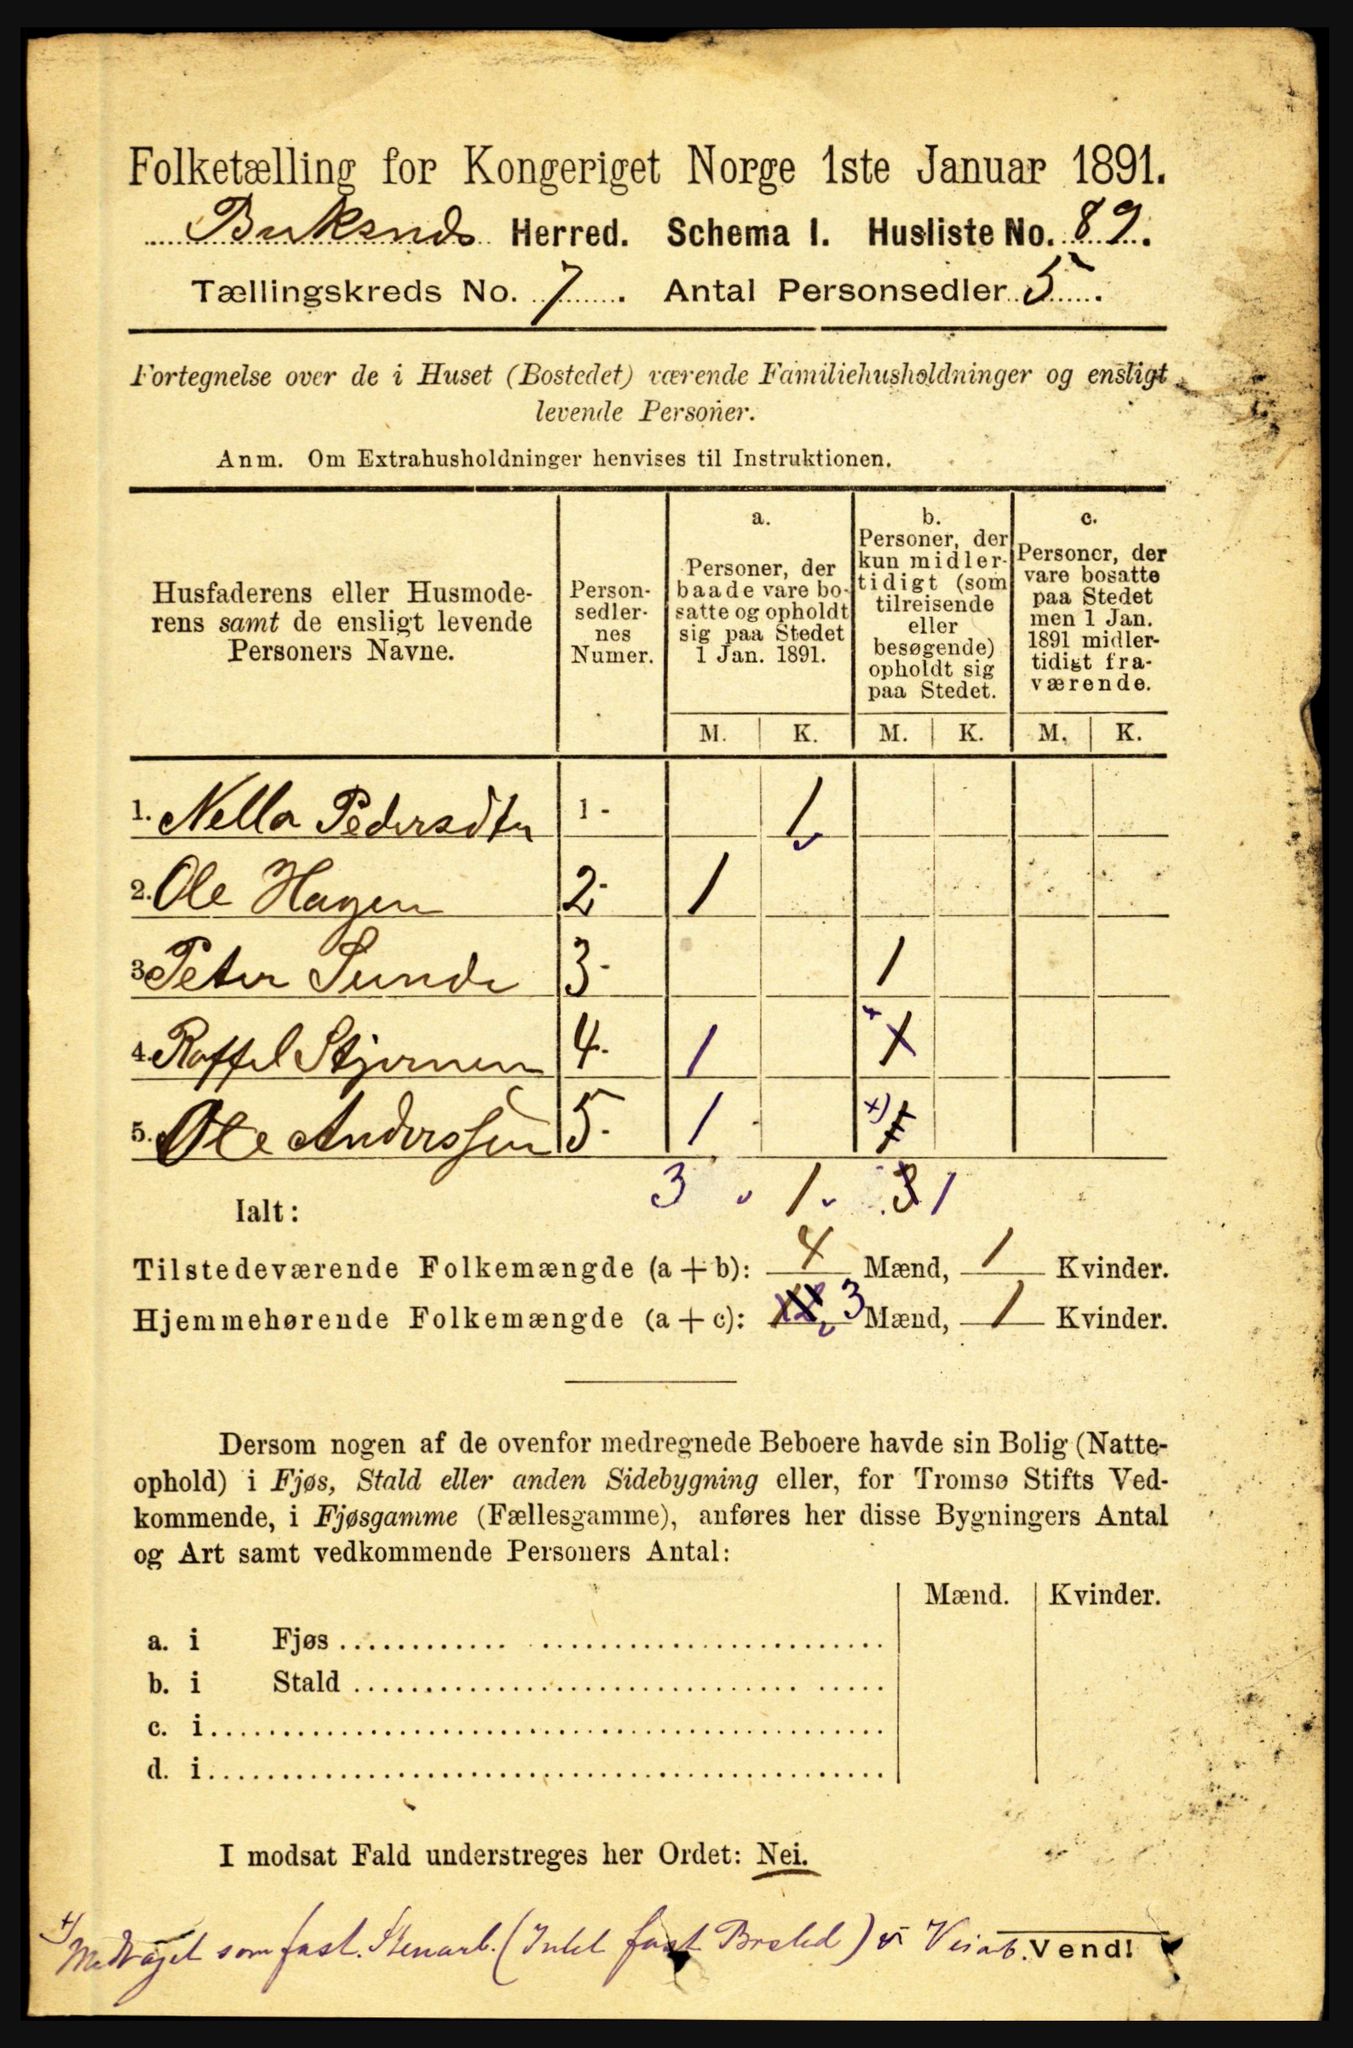 Folketælling for Kongeriget Norge 1ste Januar 1891.
Buksnes Herred. Schema I. Husliste No. 89.
Tællingskreds No. 7. Antal Personsedler 5.
Fortegnelse over de i Huset (Bostedet) værende Familiehusholdninger og ensligt
levende Personer.
Anm. Om Extrahusholdninger henvises til Instruktionen.
Husfaderens eller Husmode-
rens samt de ensligt levende
Personers Navne.
Person-
sedler-
nes
Numer.
a.
Personer, der
baade vare bo-
satte og opholdt
sig paa Stedet
1 Jan. 1891.
b.
Personer, der
kun midler-
tidigt (som
tilreisende
eller
besøgende)
opholdt sig
paa Stedet.
c.
Personer, der
vare bosatte
paa Stedet
men 1 Jan.
1891 midler-
tidigt fra-
værende.
M. K. M. K. M. K.
1. Nella Pedersdtr 1- 1
2. Ole Hagen 2- 1
3. Peter Sunde 3- 1
4. Roffel Stjernen 4- 1 1
5. Ole Anderssen 5- 1 x) 1
3 1 3 1
Ialt:
Tilstedeværende Folkemængde (a + b): 4 Mænd, 1 Kvinder.
Hjemmehørende Folkemængde (a + c): 3 Mænd, 1 Kvinder.
Dersom nogen af de ovenfor medregnede Beboere havde sin Bolig (Natte-
ophold) i Fjøs, Stald eller anden Sidebygning eller, for Tromsø Stifts Ved-
kommende, i Fjøsgamme (Fællesgamme), anføres her disse Bygningers Antal
og Art samt vedkommende Personers Antal:
Mænd. Kvinder.
a. i Fjøs
b. i Stald
c. i
d. i
I modsat Fald understreges her Ordet: Nei.
x) Medtaget som fast. (Intet fast Bosted)
Vend!